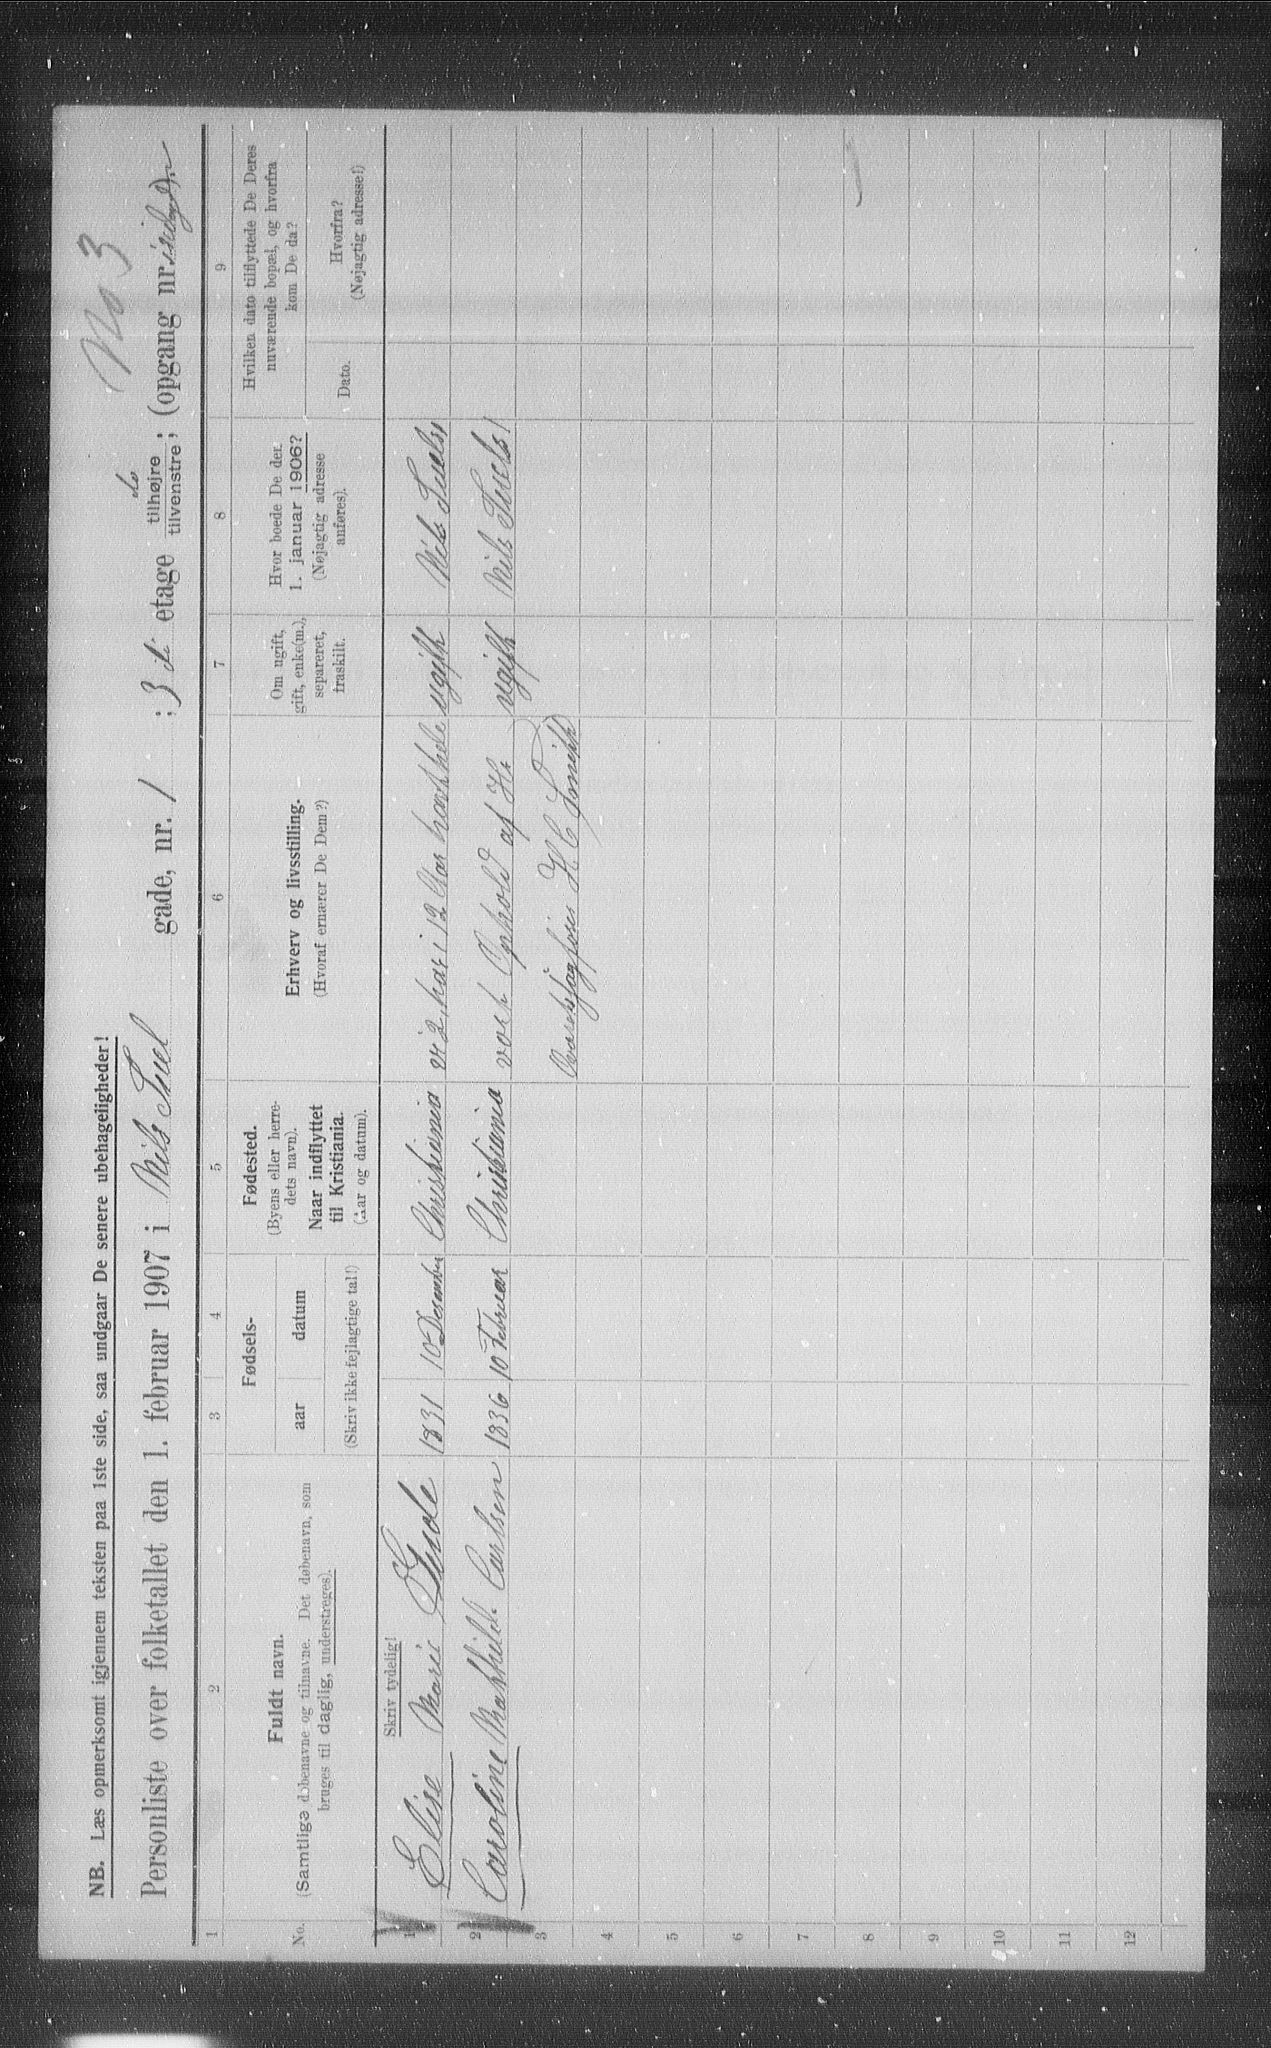 No 3
NB. Læs opmerksomt igjennem teksten paa 1ste side, saa undgaar De senere ubehageligheder!
Personliste over folketallet den 1. februar 1907 i Nils Juel gade, nr. 1 ; 3 die etage tilhøjre / tilvenstre; do (opgang nr.
1 2 3 4 5 6 7 8 9
No.
Fuldt navn.
(Samtlige døbenavne og tilnavne. Det døbenavn, som
bruges til daglig, understreges).
Skriv tydelig!
Fødsels-
aar datum
(Skriv ikke fejlagtige tal!)
Fødested.
(Byens eller herre-
dets navn).
Naar indflyttet
til Kristiania.
(Aar og datum).
Erhverv og livsstilling.
(Hvoraf ernærer De Dem?)
Om ugift,
gift, enke(m.),
separeret,
fraskilt.
Hvor boede De den
1. januar 1906?
(Nøjagtig adresse
anføres).
Hvilken dato tilflyttede De Deres
nuværende bopæl, og hvorfra
kom De da?
Dato.
Hvorfra?
(Nøjagtig adresse!)
1 Elise Marie Gude 1831 10 Desember Christiania vi 2, har i 12 Aar havt hele ugift Nils Juels
2 Caroline Mathilde Carlsen 1836 10 Februar Christiania vort Ophold af Hr ugift Nils Juels
3 H C Smith
4
5
6
7
8
9
10
11
12